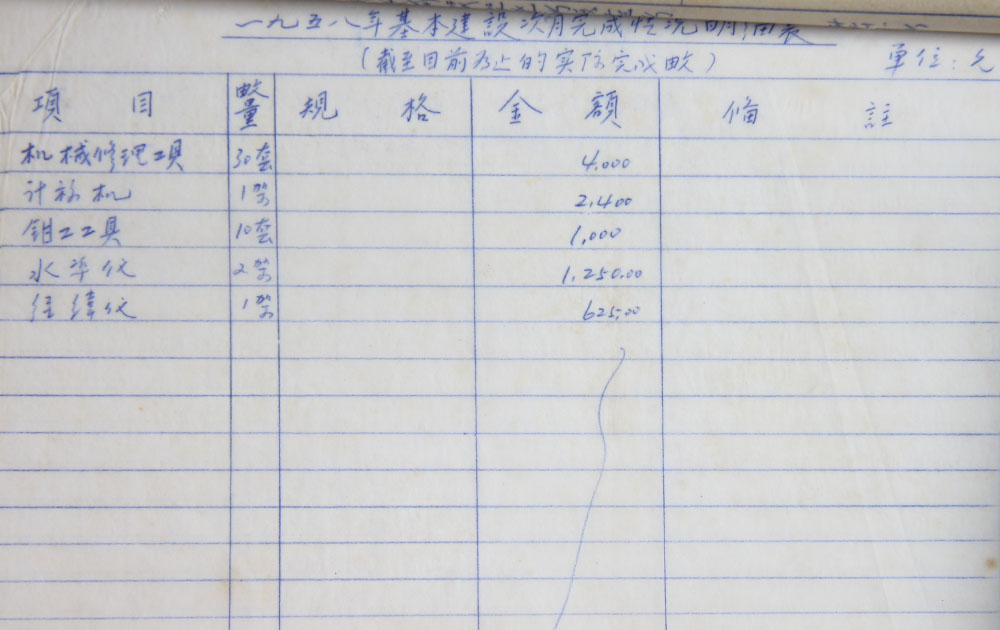 一九五八年基本建設次月完成情况明细表
(截至目前为止的实际完成数)
單位:元
項目 数量 規格 金額 備註
机械修理工具 30套 4.000
计算机 1架 2,400
钳工工具 10套 1,000
水準仪 2架 1,250.00
経緯仪 1架 625.00